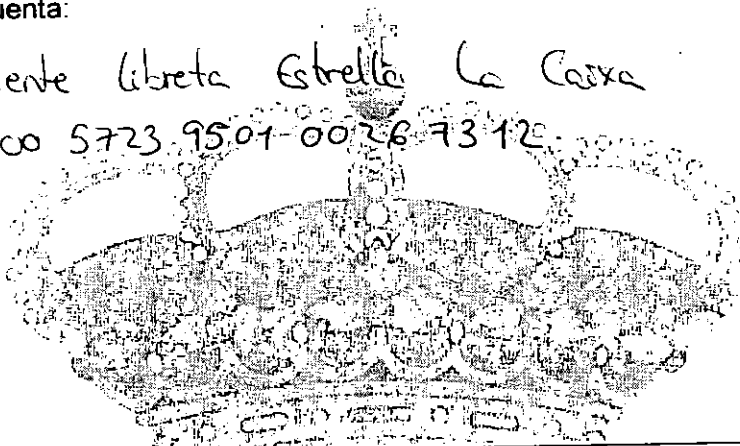 uenta:
ente libreta Estrella La Caixa
co 5723 9501-0026 7312